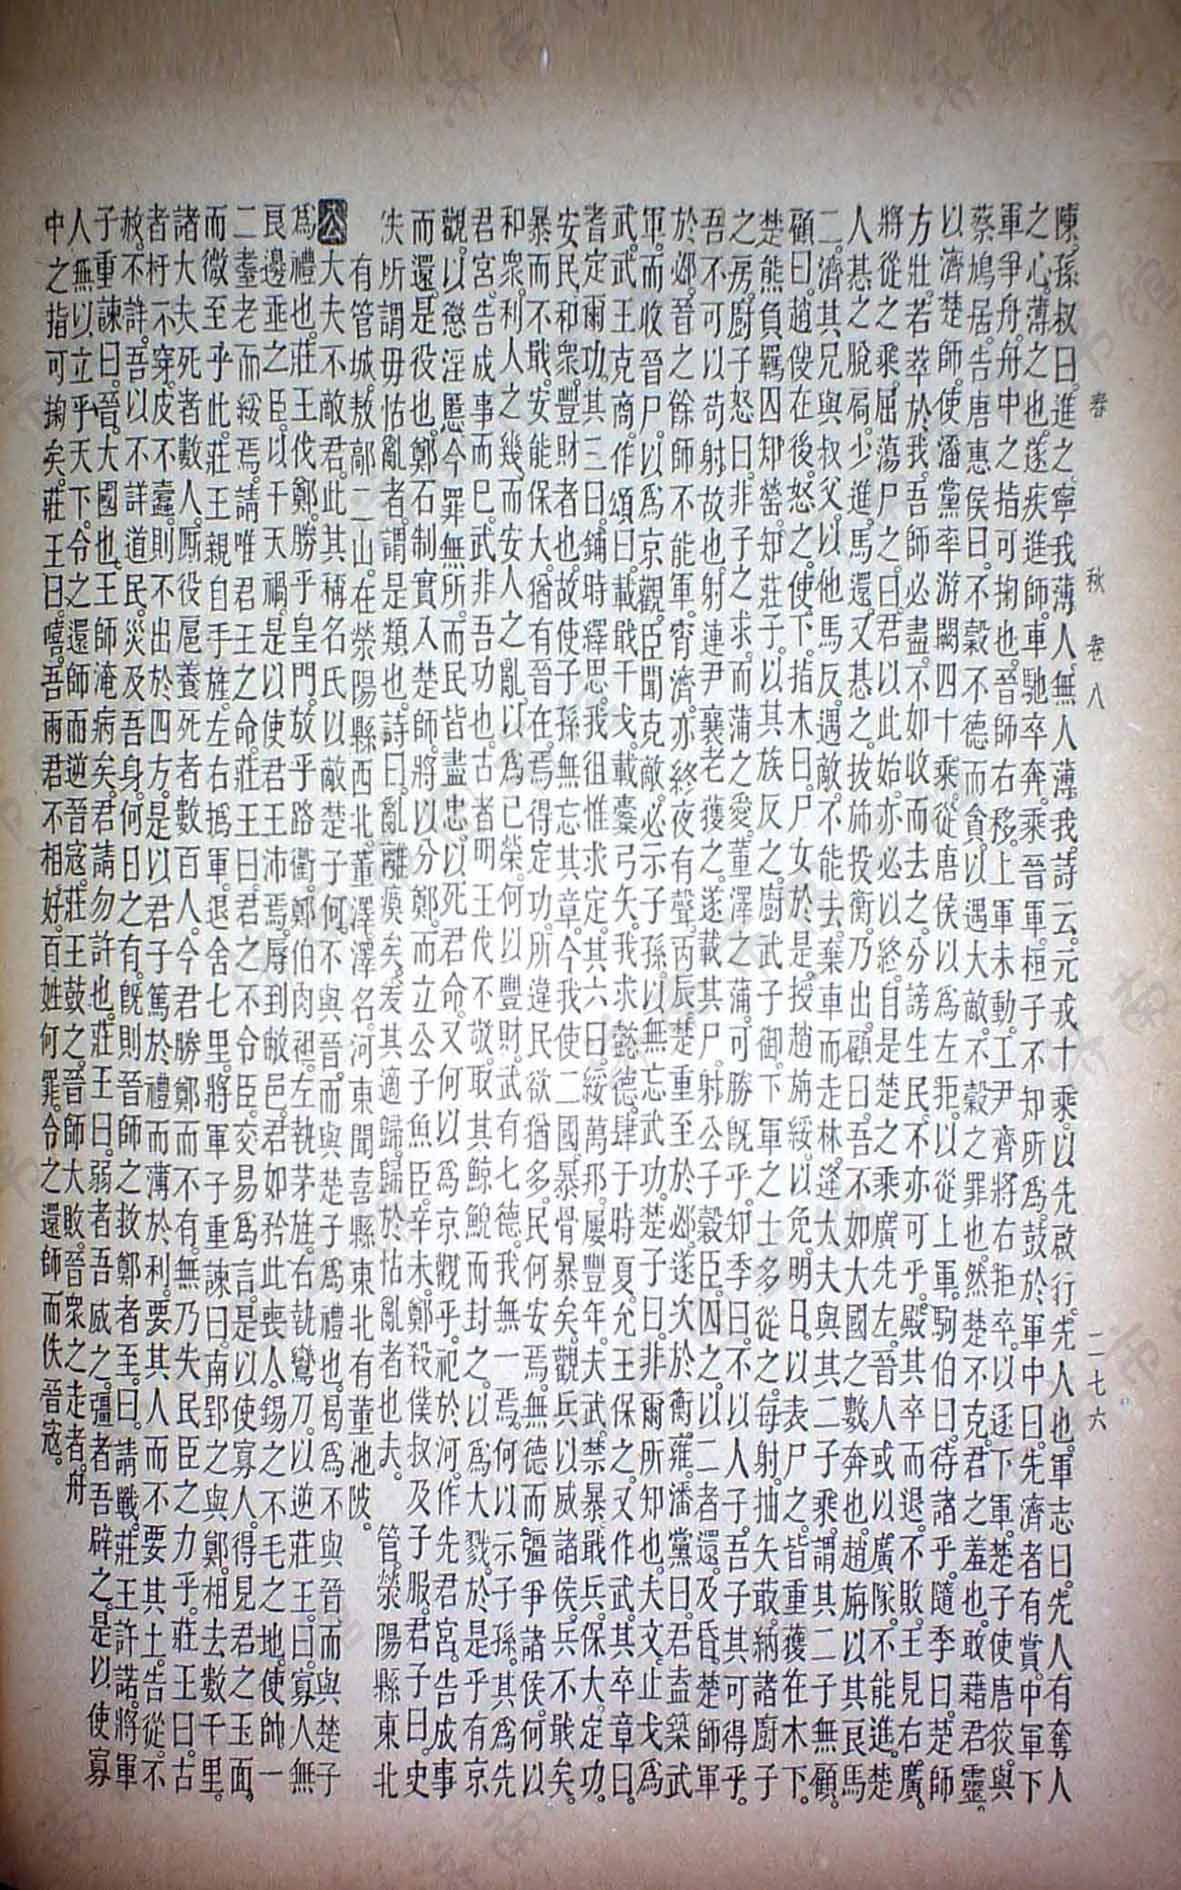 春秋卷八 二七六
陳。孫叔曰。進之。寧我薄人。無人薄我。詩云。元戎十乘。以先啟行。先人也。軍志曰。先人有奪人
之心。薄之也。遂疾進師。車馳卒奔。乘晉軍。桓子不知所爲。鼓於軍中曰。先濟者有賞。中軍下
軍爭舟。舟中之指可掬也。晉師右移。上軍未動。工尹齊將右拒卒。以逐下軍。楚子使唐狡。與
蔡鳩居。告唐惠侯曰。不穀不德而貪。以遇大敵。不穀之罪也。然楚不克。君之羞也。敢藉君靈。
以濟楚師。使潘黨率游闕四十乘。從唐侯以爲左拒。以從上軍。駒伯曰。待諸乎。隨季曰。楚師
方壯。若萃於我。吾師必盡。不如收而去之。分謗生民。不亦可乎。殿其卒而退。不敗。王見右廣。
將從之乘。屈蕩尸之。曰。君以此始。亦必以終。自是楚之乘廣先左。晉人或以廣隊。不能進。楚
人惎之脫扃。少進。馬還。又惎之。拔旆投衡。乃出。顧曰。吾不如大國之數奔也。趙旃以其良馬
二。濟其兄與叔父。以他馬反。遇敵。不能去。棄車而走林。逢大夫與其二子乘。謂其二子無顧。
顧曰。趙傁在後。怒之。使下。指木曰。尸女於是。授趙旃綏。以免。明日。以表尸之。皆重獲在木下。
楚熊負羈囚知罃。知莊子以其族反之。廚武子御。下軍之士多從之。每射。抽矢菆。納諸廚子
之房。廚子怒曰。非子之求。而蒲之愛。董澤之蒲。可勝既乎。知季曰。不以人子。吾子其可得乎。
吾不可以苟射故也。射連尹襄老。獲之。遂載其尸。射公子穀臣。囚之。以二者還。及昏。楚師軍
於邲。晉之餘師不能軍。宵濟。亦終夜有聲。丙辰。楚重至於邲。遂次於衡雍。潘黨曰。君盍築武
軍。而收晉尸。以爲京觀。臣聞克敵。必示子孫。以無忘武功。楚子曰。非爾所知也。夫文。止戈爲
武。武王克商。作頌曰。載戢干戈。載櫜弓矢。我求懿德。肆于時夏。允王保之。又作武。其卒章曰。
耆定爾功。其三曰。鋪時繹思。我徂惟求定。其六曰。綏萬邦。屢豐年。夫武。禁暴。戢兵。保大。定功。
安民。和衆。豐財者也。故使子孫無忘其章。今我使二國暴骨。暴矣。觀兵以威諸侯。兵不戢矣。
暴而不戢。安能保大。猶有晉在。焉得定功。所違民欲猶多。民何安焉。無德而彊爭諸侯。何以
和衆。利人之幾。而安人之亂。以爲己榮。何以豐財。武有七德。我無一焉。何以示子孫。其爲先
君宮。告成事而已。武非吾功也。古者明王伐不敬。取其鯨鯢而封之。以爲大戮。於是乎有京
觀。以懲淫慝。今罪無所。而民皆盡忠。以死君命。又何以爲京觀乎。祀於河。作先君宮。告成事
而還。是役也。鄭石制實入楚師。將以分鄭。而立公子魚臣。辛未。鄭殺僕叔及子服。君子曰。史
佚所謂毋怙亂者。謂是類也。詩曰。亂離瘼矣。爰其適歸。歸於怙亂者也夫。 管。滎陽縣東北
有管城。敖鄗二山。在滎陽縣西北。董澤。澤名。河東聞喜縣東北有董池陂。
公 大夫不敵君。此其稱名氏以敵楚子何。不與晉。而與楚子爲禮也。曷爲不與晉而與楚子
爲禮也。莊王伐鄭。勝乎皇門。放乎路衢。鄭伯肉袒。左執茅旌。右執鸞刀。以逆莊王。曰。寡人無
良邊垂之臣。以干天禍。是以使君王沛焉。辱到敝邑。君如矜此喪人。錫之不毛之地。使帥一
二耋老而綏焉。請唯君王之命。莊王曰。君之不令臣。交易爲言。是以使寡人。得見君之玉面。
而微至乎此。莊王親自手旌。左右撝軍。退舍七里。將軍子重諫曰。南郢之與鄭。相去數千里。
諸大夫死者數人。廝役扈養死者數百人。今君勝鄭而不有。無乃失民臣之力乎。莊王曰。古
者杅不穿。皮不蠹。則不出於四方。是以君子篤於禮而薄於利。要其人而不要其土。告從。不
赦。不詳。吾以不詳道民。災及吾身。何日之有。既則晉師之救鄭者至。曰。請戰。莊王許諾。將軍
子重諫曰。晉。大國也。王師淹病矣。君請勿許也。莊王曰。弱者吾威之。彊者吾辟之。是以使寡
人無以立乎天下。令之還師而逆晉寇。莊王鼓之。晉師大敗。晉衆之走者。舟
中之指可掬矣。莊王曰。嘻。吾兩君不相好。百姓何罪。令之還師而佚晉寇。